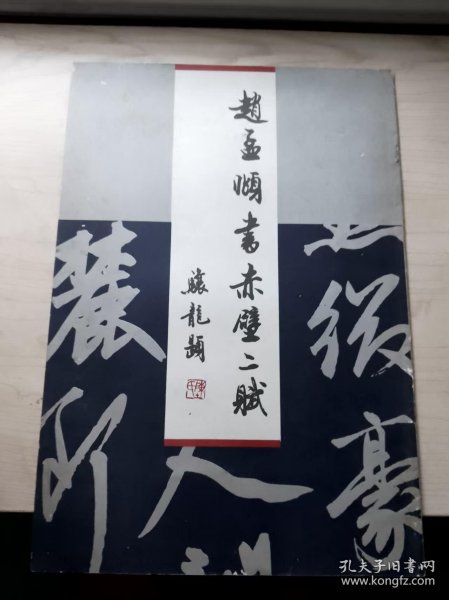 趙孟頫書赤壁二賦
驤龍題
麓
所
人
縱
豪
孔夫子旧书网
www.kongfz.com